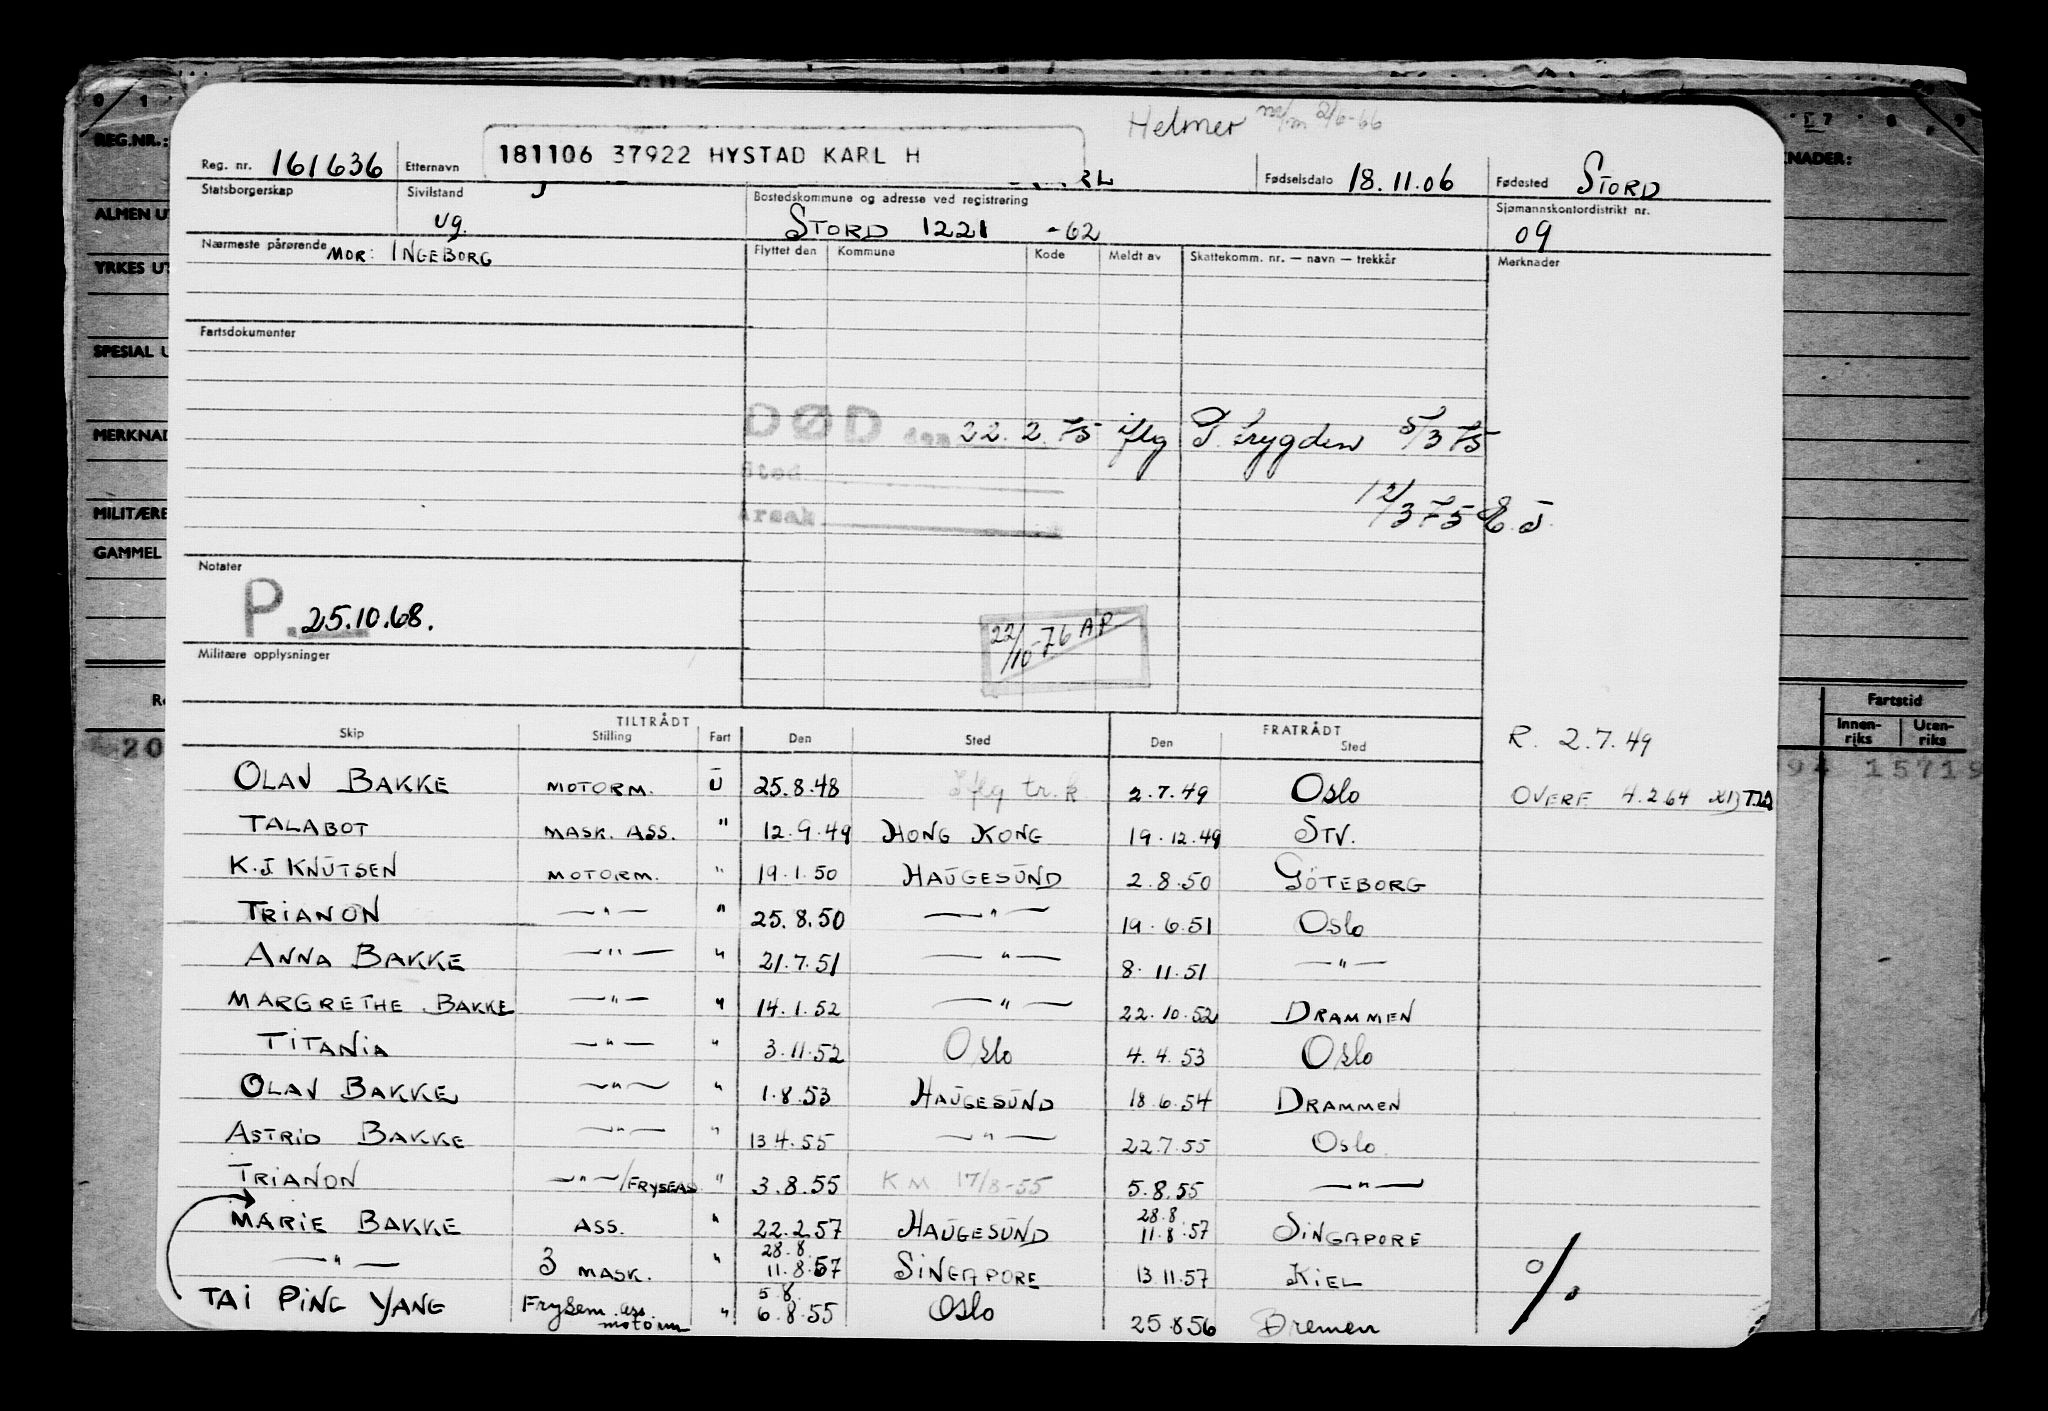 Helmer
Reg. nr. 161636 Etternavn 181106 37922 HYSTAD KARL H Fødselsdato 18.11.06 Fødested STORD
Statsborgerskap Sivilstand ug. Bostedskommune og adresse ved registrering STORD 1221 -62 Sjømannskontordistrikt nr. 09
Nærmeste pårørende MOR: INGEBORG Flyttet den Kommune Kode Meldt av Skattekomm. nr. — navn — trekkår Merknader
Fartsdokumenter
DØD den 22.2.75 iflg trygden 5/3 75
Sted
Årsak 12/3 75
Notater
P. 25.10.68.
22/10-76 AP
Militære opplysninger
TILTRÅDT FRATRÅDT
Skip Stilling Fart Den Sted Den Sted R. 2.7.49
OLAV BAKKE MOTORM. U 25.8.48 Iflg tr.k 2.7.49 OSLO OVERF 4.2.64
TALABOT MASK. ASS. " 12.9.49 HONG KONG 19.12.49 STV.
K.J KNUTSEN MOTORM. " 19.1.50 HAUGESUND 2.8.50 GÖTEBORG
TRIANON —"— " 25.8.50 —"— 19.6.51 OSLO
ANNA BAKKE —"— " 21.7.51 —"— 8.11.51 —"—
MARGRETHE BAKKE —"— " 14.1.52 —"— 22.10.52 DRAMMEN
TITANIA —"— " 3.11.52 OSLO 4.4.53 OSLO
OLAV BAKKE —"— " 1.8.53 HAUGESUND 18.6.54 DRAMMEN
ASTRID BAKKE —"— " 13.4.55 —"— 22.7.55 OSLO
TRIANON —"—/FRYSEAS " 3.8.55 KM 17/8-55 5.8.55 —"—
MARIE BAKKE ASS. " 22.2.57 HAUGESUND 28.8. 11.8.57 SINGAPORE
—"— 3 MASK. " 28.8. 11.8.57 SINGAPORE 13.11.57 KIEL
TAI PING YANG Frysem. ass. motorm " 5.8. 6.8.55 OSLO 25.8.56 Bremen
REG.NR.:
ALMEN
YRKES
SPESIAL
MERKNAD
MILITÆRE
GAMMEL
Fartstid
Innen-riks Uten-riks